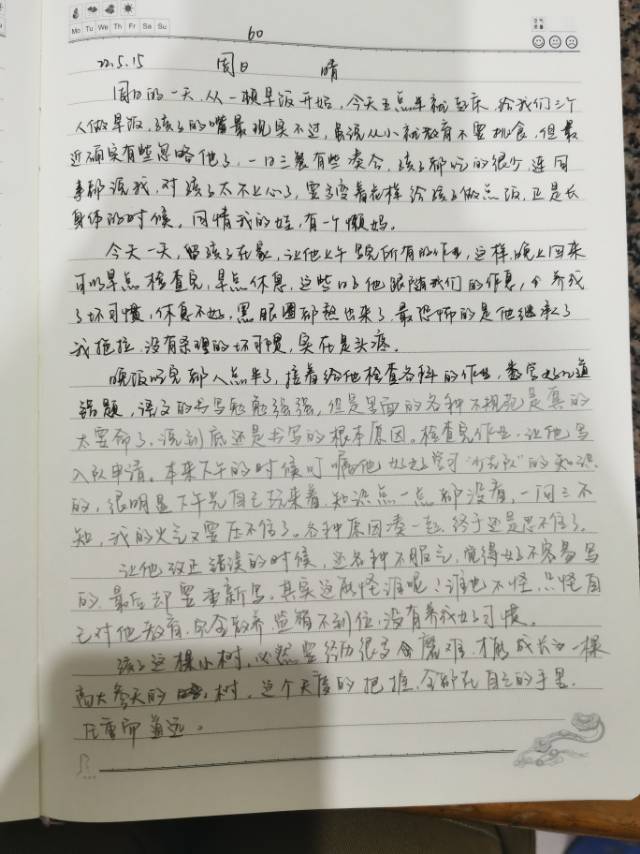 Mo Tu We Th Fr Sa Su
60
22.5.15 周日 晴
周日的一天,从一顿早饭开始,今天五点半就起床,给我们三个
人做早饭,孩子的嘴最现实不过,虽说从小就教育不要挑食,但最
近确实有些忽略他了,一日三餐有些凑合,孩子都吃的很少,连同
事都说我,对孩子太不上心了,要多变着花样给孩子做点饭,正是长
身体的时候。同情我的娃,有一个懒妈。
今天一天,留孩子在家,让他上午写完所有的作业,这样,晚上回来
可以早点检查完,早点休息,这些日子他跟随我们的作息,养成
了坏习惯,休息不好,黑眼圈都熬出来了,最恐怖的是他继承了
我拖拉,没有条理的坏习惯,实在是头疼。
晚饭吃完都八点半了,接着给他检查各科的作业,数学好几道
错题,语文的书写勉勉强强,但是里面的各种不规范是真的
太要命了,说到底还是书写的根本原因。检查完作业,让他写
入队申请。本来下午的时候叮嘱他好好学习“少先队”的知识
的,很明显下午光自己玩来着,知识点一点都没看,一问三不
知,我的火气又要压不住了。各种原因凑一起,终于还是忍不住了。
让他改正错误的时候,还各种不服气,觉得好不容易写
的,最后却要重新写。其实这都怪谁呢?谁也不怪,只怪自
己对他教育,完全教养监督不到位,没有养成好习惯。
孩子这棵小树,必然要经历很多磨难,才能成长为一棵
高大参天的树,这个尺度的把握,全部在自己的手里。
任重而道远。